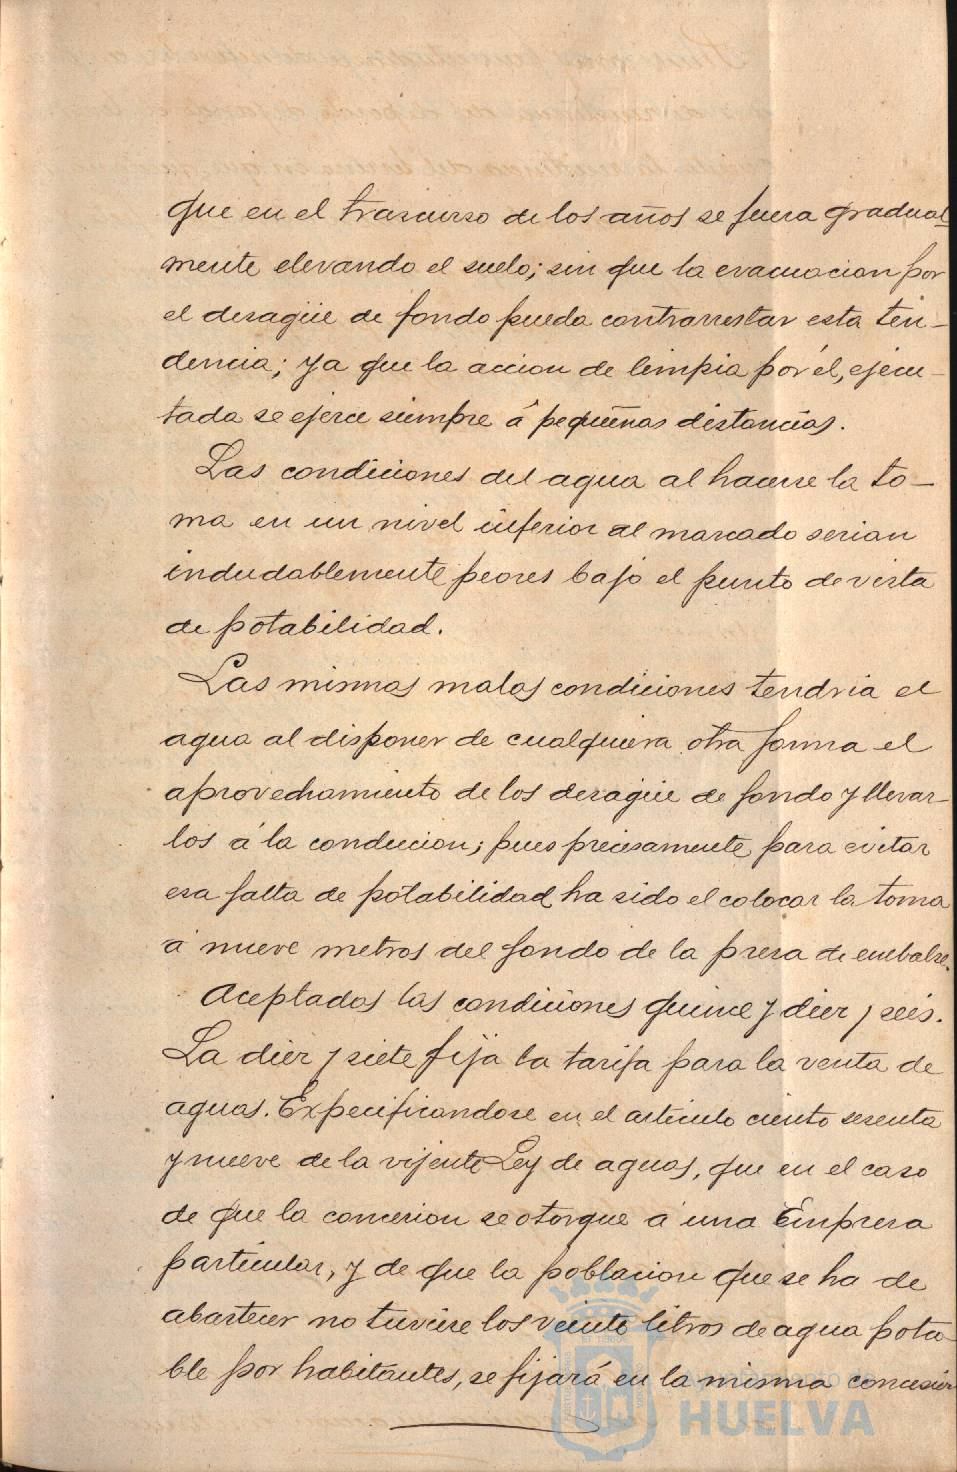 que en el trascurso de los años se fuera gradual-
mente elevando el suelo; sin que la evacuacion por
el desagüe de fondo pueda contrarrestar esta ten-
dencia; ya que la accion de limpia por él, ejecu-
tada se ejerce siempre á pequeñas distancias.
Las condiciones del agua al hacerse la to-
ma en un nivel inferior al marcado serian
indudablemente peores bajo el punto de vista
de potabilidad.
Las mismas malas condiciones tendria el
agua al disponer de cualquiera otra forma el
aprovechamiento de los desagüe de fondo y llevar-
los á la conducion; pues precisamente para evitar
esa falta de potabilidad ha sido el colocar la toma
á nueve metros del fondo de la presa de embalse.
Aceptadas las condiciones quince y diez y seis.
La diez y siete fija la tarifa para la venta de
aguas. Expecificandose en el artículo ciento sesenta
y nueve de la vijente Ley de aguas, que en el caso
de que la concesion se otorgue á una Empresa
particular, y de que la poblacion que se ha de
abastecer no tuviere los veinte litros de agua pota-
ble por habitantes, se fijará en la misma concesion
HUELVA